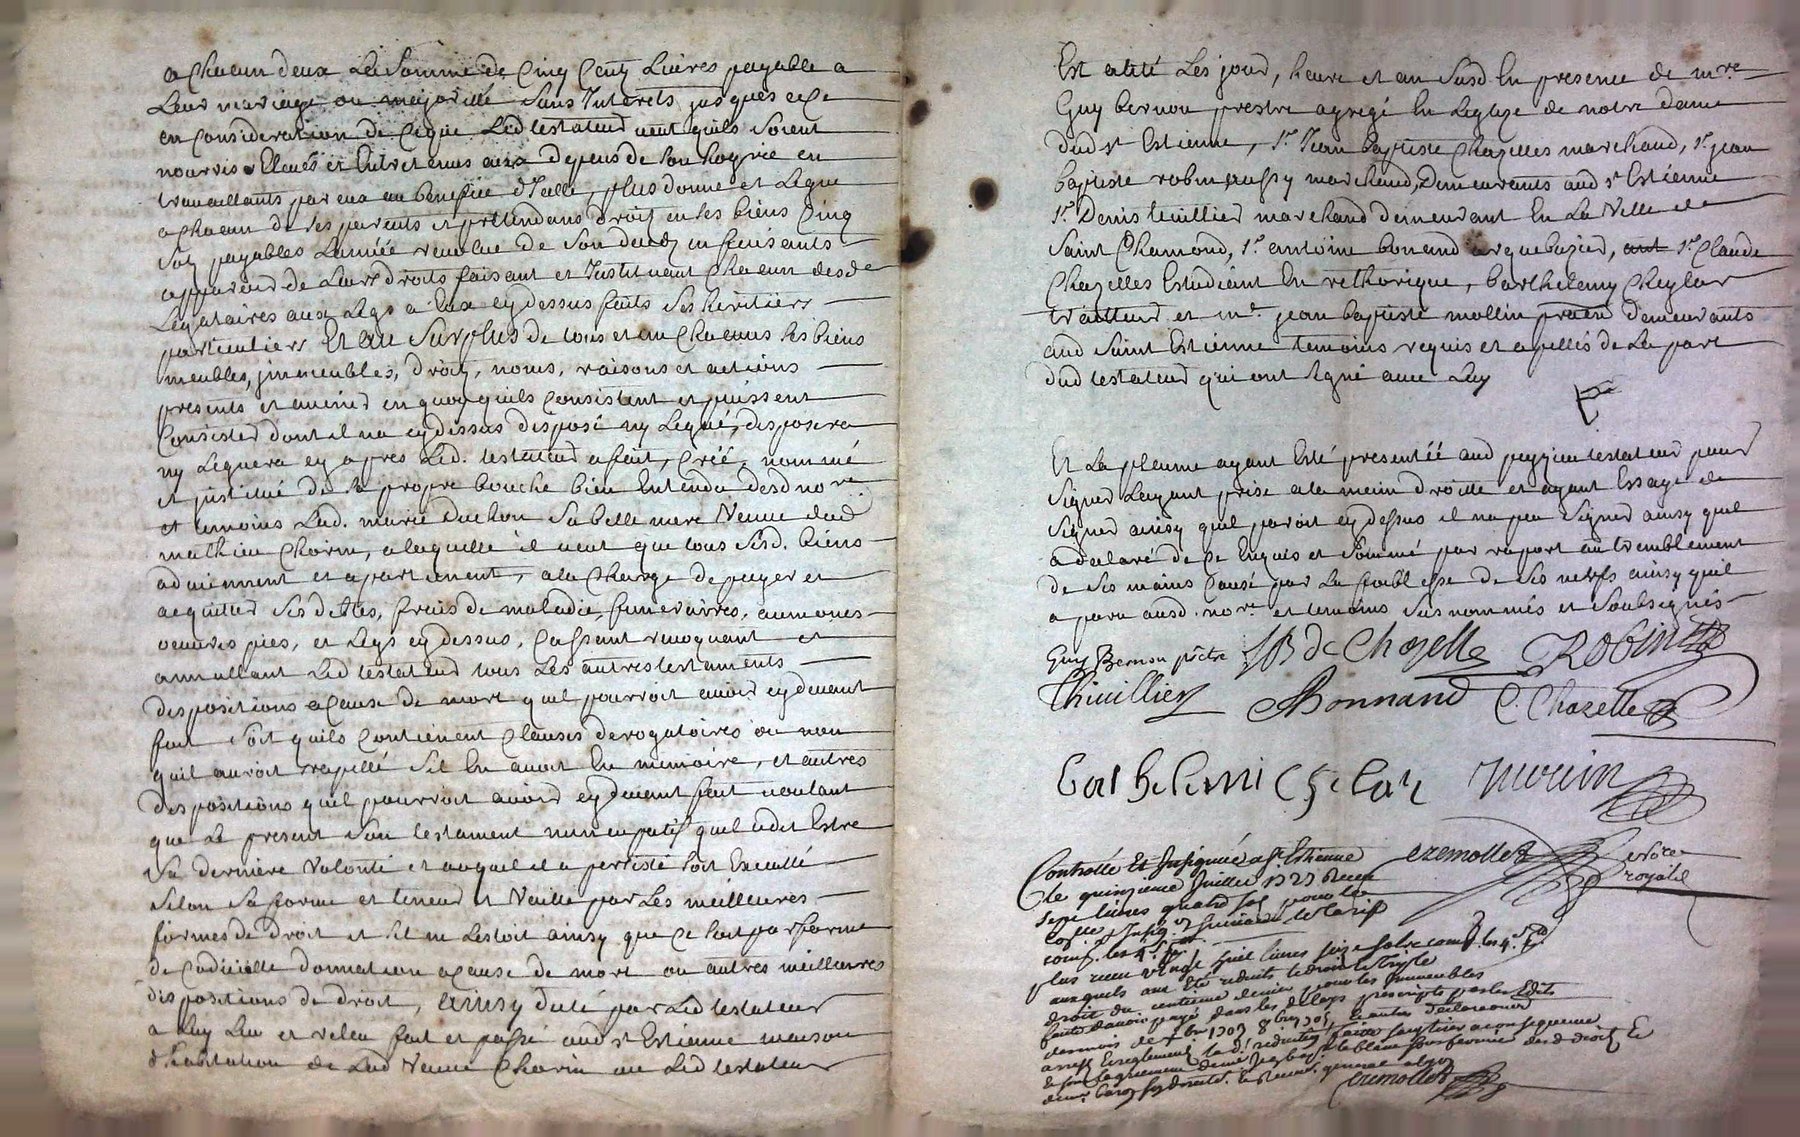 a Chacun deux La Somme de Cinq Cents Livres payable a
Leur mariage ou majorité Sans Interets jusques a ce
en Consideration de Ceque Led testateur veut quils Soient
nourris Elevés et Entretenus aux depens de Son hoyrie en
travaillants par eux au benefice d'Icelle, plus donne et Legue
a Chacun de Ses parents et pretendans droits en Ses biens Cinq
Sols payables L'année revolue de Son deceds en faisants
apparoir de Leurs droits faisant et Instituant Chacun desd
Legataires aux Legs a Eux cydessus faits Ses heritiers
particuliers Et Au Surplus de tous et un Chacuns Ses biens
meubles, jmmeubles, droits, noms, raisons et actions
presents et avenir en quoy quils Consistent et puissent
Consister dont il na cydessus disposé ny Legué, disposera
ny Leguera cy apres Led. testateur a fait, Créé, nommé
et jnstitué de Sa propre bouche bien Entendu desd no.re
et temoins Lad. marie duchon Sa belle mere Veuve dud
mathieu Chorin, a laquelle il veut que tous Sesd. biens
adviennent et apartienent, a la Charge de payer et
acquitter Ses dettes, frais de maladie, funeraires, aumones
oeuvres pies, et Legs cydessus, Cassant revoquant et
annullant Led testateur tous Les autres testaments
dispositions a Cause de mort quil pourroit avoir cydevant
fait Soit quils Contienent Clauses derogatoires ou non
quil auroit rapellé Sil En avoit Eu memoire, et autres
dispositions quil pourroit avoir cydevant fait voulant
que Le present Son testament nuncupatif quil a dit Estre
Sa derniere Volonté et auquel il a persisté Soit Executté
Selon Sa forme et teneur et Vaille par Les meilleures
formes de droit et Sil ne Lestoit ainsy que Ce Soit par forme
de Codicille donnation a Cause de mort ou autres meilleures
dispositions de droit, Ainsy dicté par Led testateur
a Luy Leu et releu fait et passé aud St Estienne maison
d'habitation de Lad Veuve Chorin ou Led testateur
Est alité Les jour, heure et an Susd En presence de m.re
Guy bernou prestre agregé En Leglize de notre dame
dud St Estienne, Sr Jean baptiste Chazelles marchand, Sr jean
baptiste robin aussy marchand, Demeurants aud St Estienne
Sr Denis tuillier marchand demeurant En La Ville de
Saint Chamond, Sr antoine bonand arquebuzier, Sr Claude
Chazelles Estudiant En rethorique, barthelemy Cheylar
trailleur et me jean baptiste mollin demeurants
aud Saint Estienne temoins requis et apellés de La part
dud testateur qui ont Signé avec Luy
Et La plume ayant Esté presentéé aud testateur pour
Signer Layant prise a la main droitte et ayant Essayé de
Signer ainsy quil paroit cydessus il na peu Signer ainsy quil
a declaré de Ce Enquis et Sommé par raport au tremblement
de Ses mains Causé par La foiblesse de Ses nerfs ainsy quil
a paru ausd. no.re et temoins Susnommés et Soubsignés
Guy Bernou prêtre JB de Chazelle ROBIN
Thuillier ABonnand C. Chazelle
Barthelemi Chelar Morin
cremollet no.re royal
Controllé Et Insignué a St Estienne
le quinzieme Juillet 1727 Receu
sept livres quatre sols pour le
Con.lle et Insig.on suivant le tarif
comp. les 4 s. pr
plus receu vingt huit livres seize sols comp. les 4 s. pd
auxquels ont été reduits le droit et le triple
droit du centieme denier pour les jmmeubles
faute d'avoir payé dans les delays prescripts par les Edits
arrest
cremollet